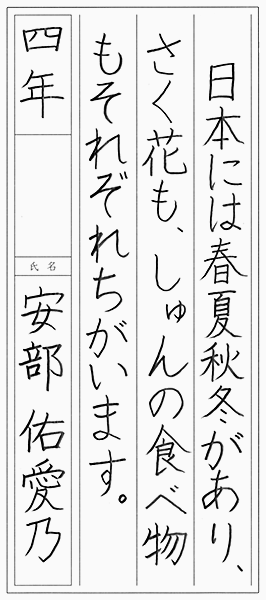 日本には春夏秋冬があり、
さく花も、しゅんの食べ物
もそれぞれちがいます。
四年
氏名
安部佑愛乃